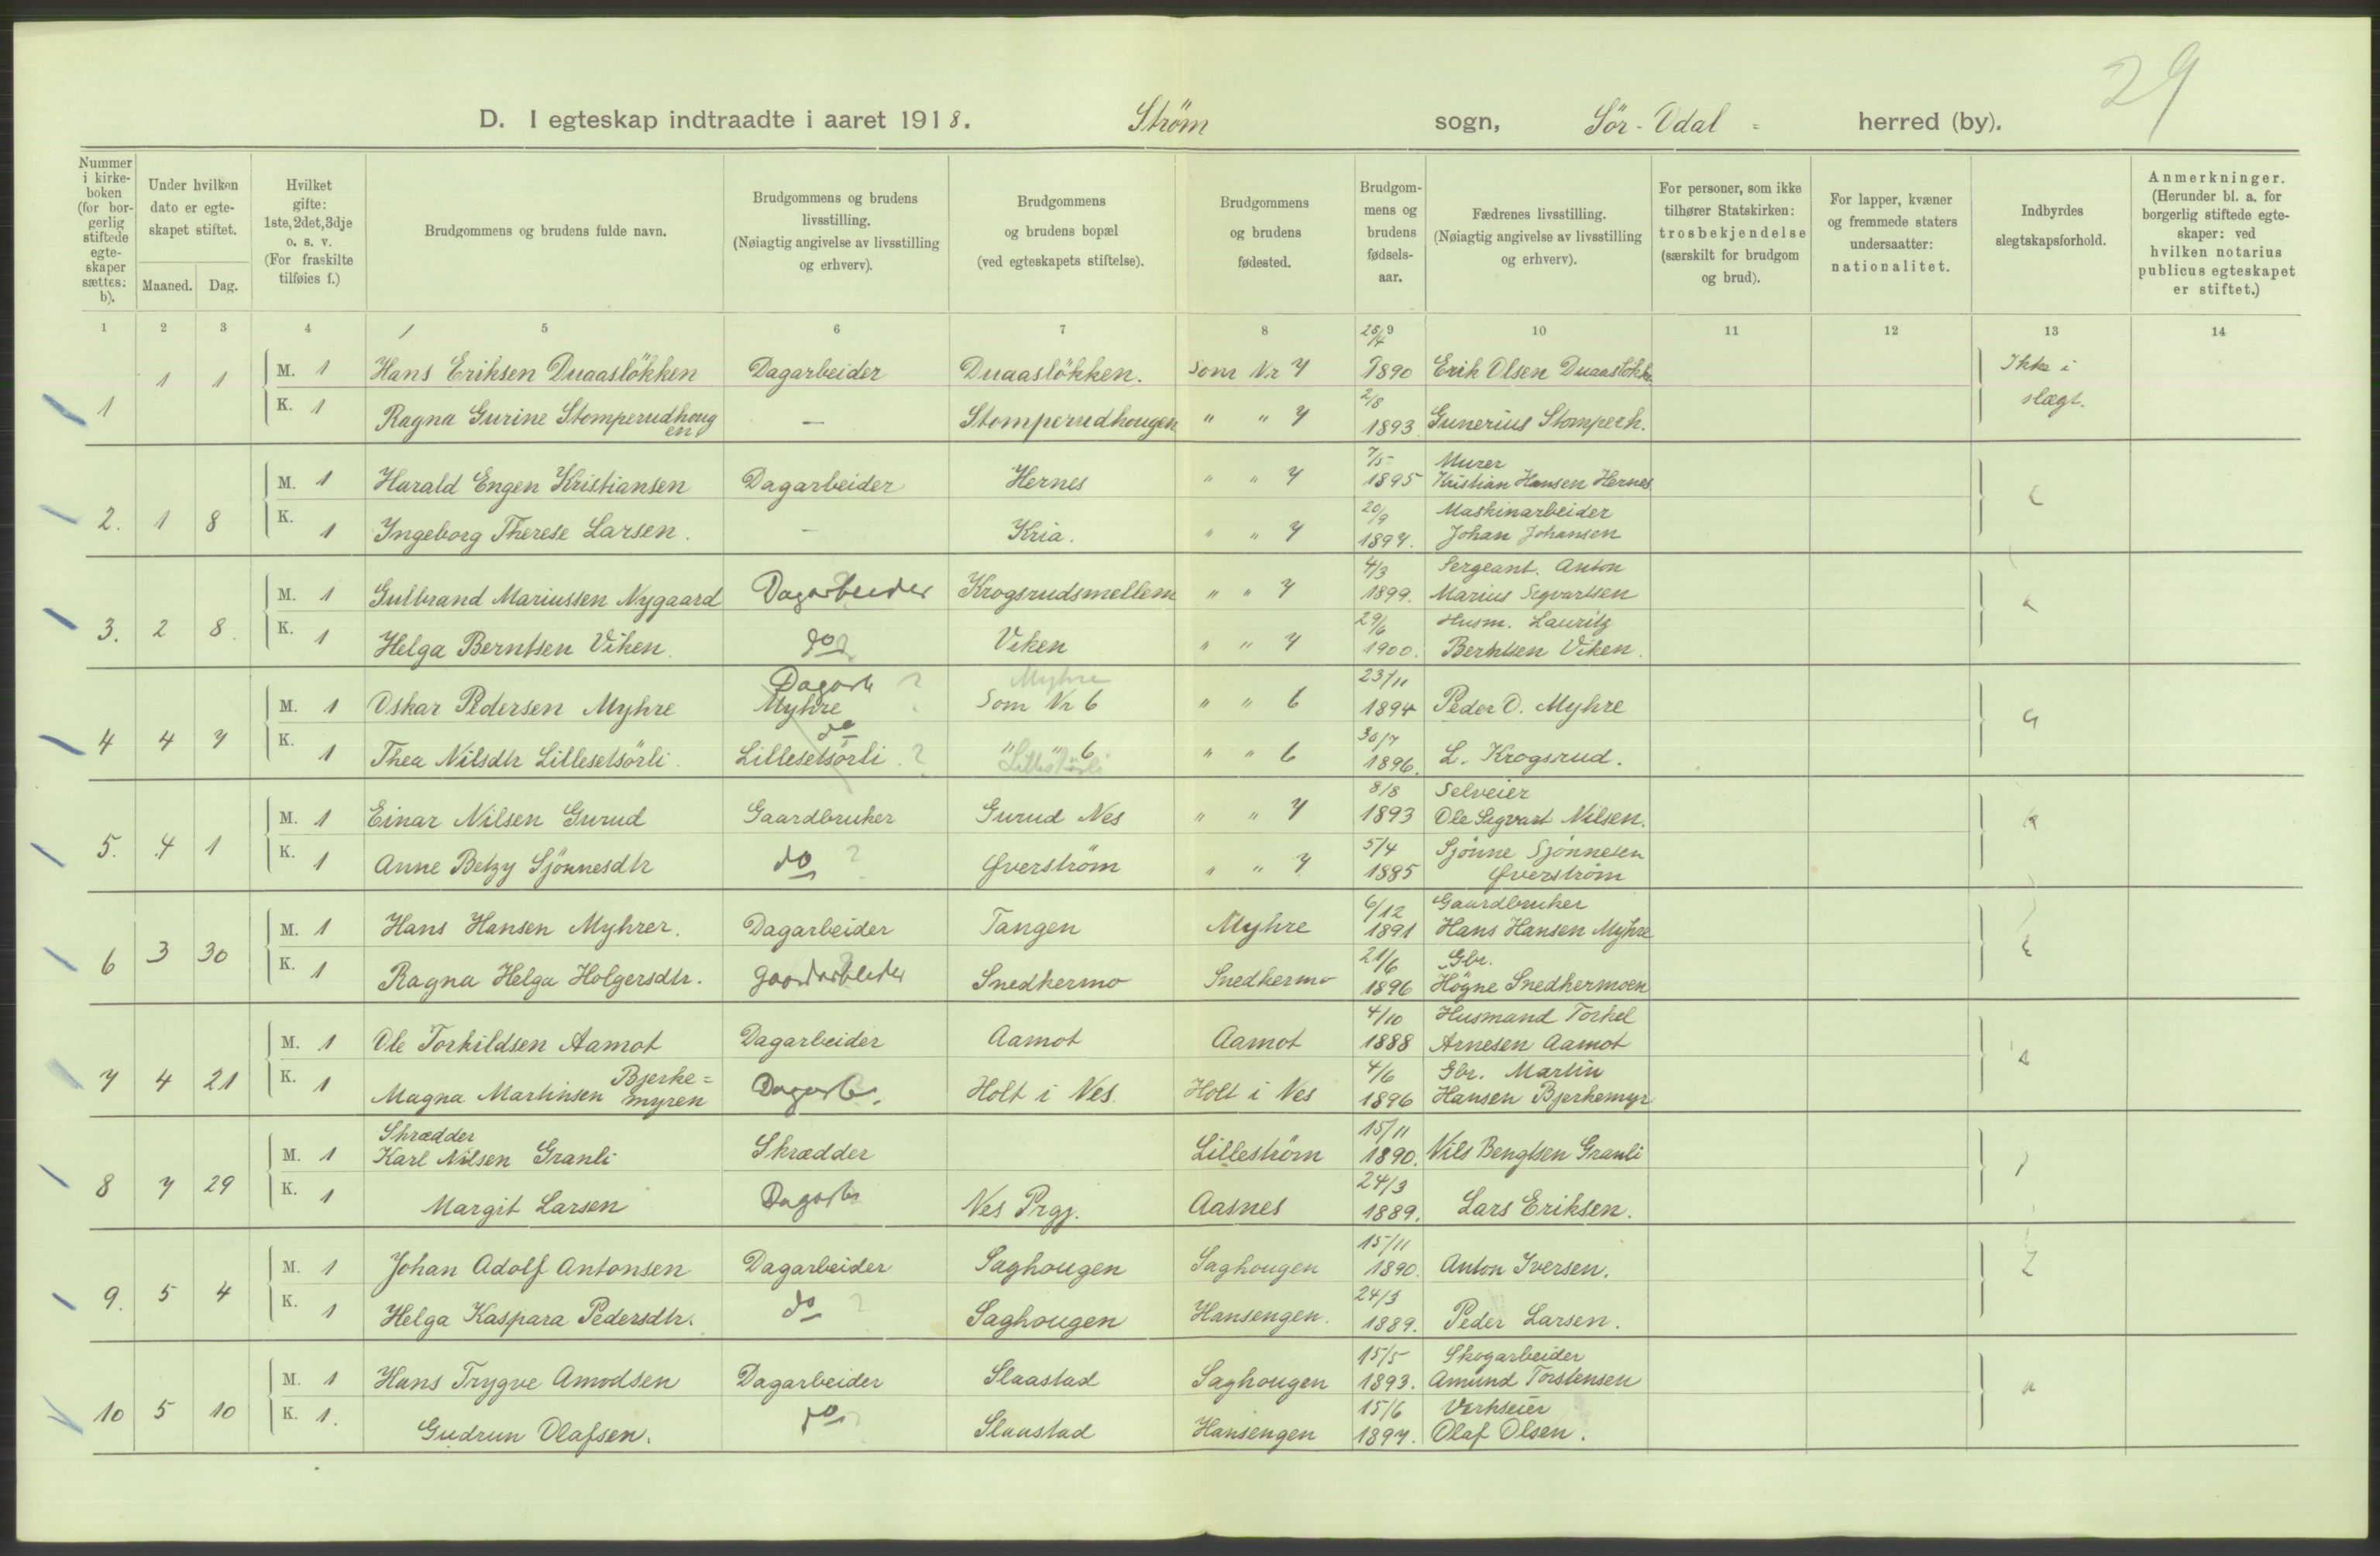 29
D. I egteskap indtraadte i aaret 1918. Ström sogn, Sör-Odal herred (by).
Nummer i kirkeboken (for borgerlig stiftede egteskaper sættes: b).
Under hvilken dato er egteskapet stiftet.
Maaned. Dag.
Hvilket gifte: 1ste, 2det, 3dje o. s. v. (For fraskilte tilføies f.)
Brudgommens og brudens fulde navn.
Brudgommens og brudens livsstilling. (Nøiagtig angivelse av livsstilling og erhverv).
Brudgommens og brudens bopæl (ved egteskapets stiftelse).
Brudgommens og brudens fødested.
Brudgommens og brudens fødselsaar.
Fædrenes livsstilling. (Nøiagtig angivelse av livsstilling og erhverv).
For personer, som ikke tilhører Statskirken: trosbekjendelse (særskilt for brudgom og brud).
For lapper, kvæner og fremmede staters undersaatter: nationalitet.
Indbyrdes slegtskapsforhold.
Anmerkninger. (Herunder bl. a. for borgerlig stiftede egteskaper: ved hvilken notarius publicus egteskapet er stiftet.)
1 2 3 4 5 6 7 8 9 10 11 12 13 14
1 1 1 M. 1 Hans Eriksen Duaaslökken Dagarbeider Duaaslökken. Som Nr 7 28/4 1890 Erik Olsen Duaaslökk Ikke i slægt.
K. 1 Ragna Gurine Stomperudhougen — Stomperudhougen " " 7 2/8 1893 Gunerius Stomperh.
2. 1 8 M. 1 Harald Engen Kristiansen Dagarbeider Hernes " " 7 7/5 1895 Murer Kristian Hansen Hernes
K. 1 Ingeborg Therese Larsen. — Kria. " " 7 20/9 1897. Maskinarbeider Johan Johansen
3. 2 8. M. 1 Gulbrand Mariussen Nygaard Dagarbeider Krogsrudsmellem " " 7 4/3 1899. Sergeant. Anton Marius Sigvartsen
K. 1 Helga Berntsen Viken. do ? Viken " " 7 29/6 1900. Husm. Lauritz Berntsen Viken.
4 4 7 M. 1 Oskar Pedersen Myhre Dagarb ? Myhre Myhre Som Nr 6 " " 6 23/11 1894 Peder O. Myhre
K. 1 Thea Nilsdtr Lillesetsörli. do Lillesetsörli ? " " 6 " " 6 30/7 1896. L. Krogsrud.
5. 4 1 M. 1 Einar Nilsen Gurud Gaardbruker Gurud Nes " " 7 8/8 1893 Selveier Ole Sigvart Nilsen.
K. 1 Anne Betzy Sjönnesdtr do ? Øverström " " 7 5/4 1885 Sjönne Sjönnesen Øverström
6 3 30 M. 1 Hans Hansen Myhrer. Dagarbeider Tangen Myhre 6/12 1891 Gaardbruker Hans Hansen Myhre
K. 1 Ragna Helga Holgersdtr. Gaardarbeider Snedkermo Snedkermo 21/6 1896 Gbr. Högne Snedkermoen
7 4 21 M. 1 Ole Torkildsen Aamot Dagarbeider Aamot Aamot 4/10 1888 Husmand Torkel Arnesen Aamot
K. 1 Magna Martinsen Bjerke=myren Dagarb. Holt i Nes. Holt i Nes 4/6 1896 Gbr. Martin Hansen Bjerkemyr
8 7 29 M. 1 Skrædder Karl Nilsen Granli Skrædder Lilleström 15/11 1890. Nils Bengtsen Granli
K. 1 Margit Larsen Dagarb Nes Prgj. Aasnes 24/3 1889. Lars Eriksen.
9. 5 4 M. 1 Johan Adolf Antonsen Dagarbeider Saghougen Saghougen 15/11 1890. Anton Iversen.
K. 1 Helga Kaspara Pedersdtr. do ? Saghougen Hansengen. 24/3 1889. Peder Larsen.
10 5 10 M. 1 Hans Trygve Amodsen Dagarbeider Slaastad Saghougen 15/5 1893. Skogarbeider Amund Torstensen
K. 1. Gudrun Olafsen. do Slaastad Hansengen 15/6 1897. Verkseier Olaf Olsen.